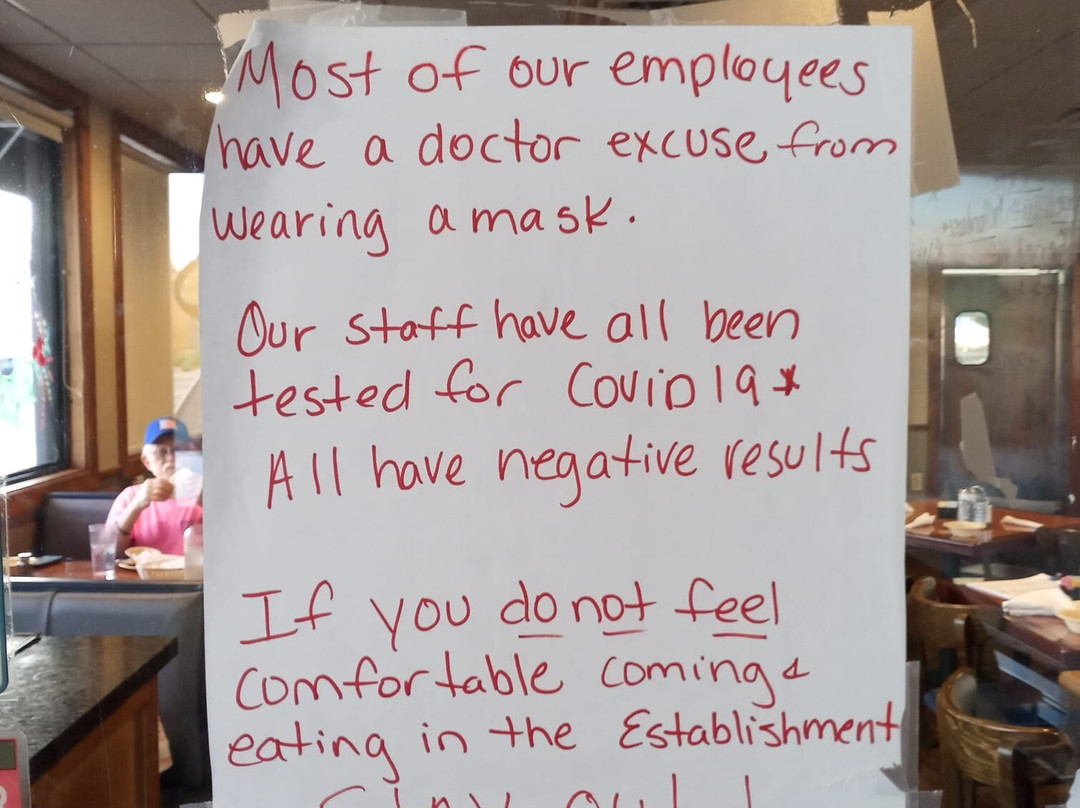 Most of our employees
have a doctor excuse from
wearing a mask.
Our staff have all been
tested for COVID 19 *
All have negative results
If you do not feel
comfortable coming &
eating in the Establishment